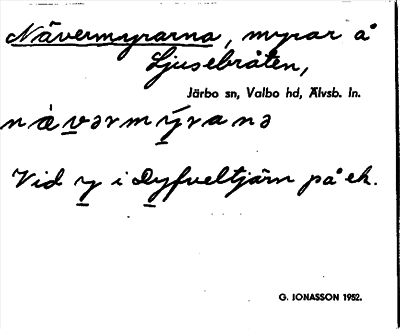 Nävermyrarna, myrar å
Ljusebråten,
Järbo sn, Valbo hd, Älvsb. ln.
nàvərmýranə
Vid y i Dyfveltjärn på ek.
G. JONASSON 1952.